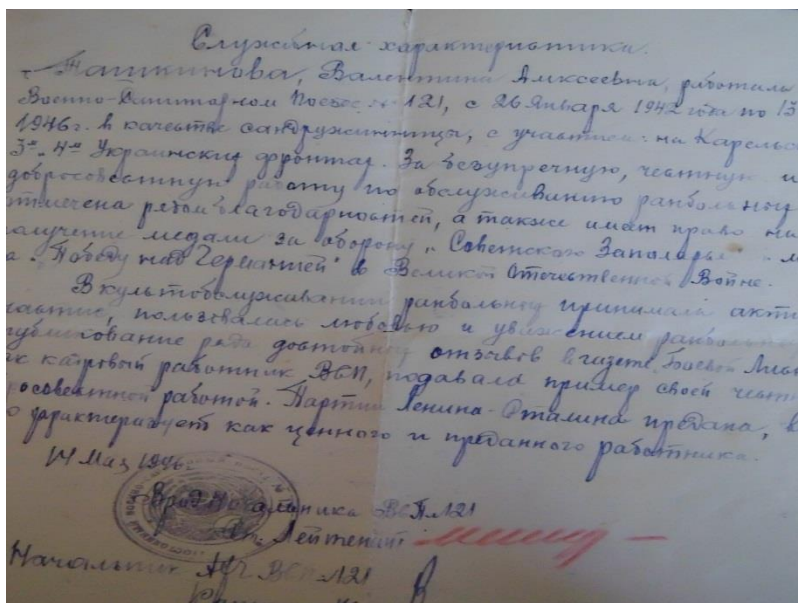 Служебная характеристика.
Ташкинова, Валентина Алексеевна, работала
Военно-Санитарном Поезде № 121, с 26 Января 1942 года по 13
1946 г. в качестве сандружинницы, с участием на Карельс
3м, 4м Украинских фронтах. За безупречную, честную и
добросовестную работу по обслуживанию ранбольных
отмечена рядом благодарностей, а также имеет право на
получение медали за оборону „Советского Заполярья"
а „Победу над Германией" в Великой Отечественной Войне.
В культобслуживании ранбольных принимала акти
частие, пользовалась любовью и уважением ранбольных
публикование ряда достойных отзывов в газете „Боевой Лист
ак кадровый работник ВСП, подавала пример своей честн
росовестной работой. Партии Ленина-Сталина предана,
о характеризует как ценного и преданного работника.
14 Мая 1946
Врид Начальника ВСП-121
Ст. Лейтенант
Начальник АХЧ ВСП-121